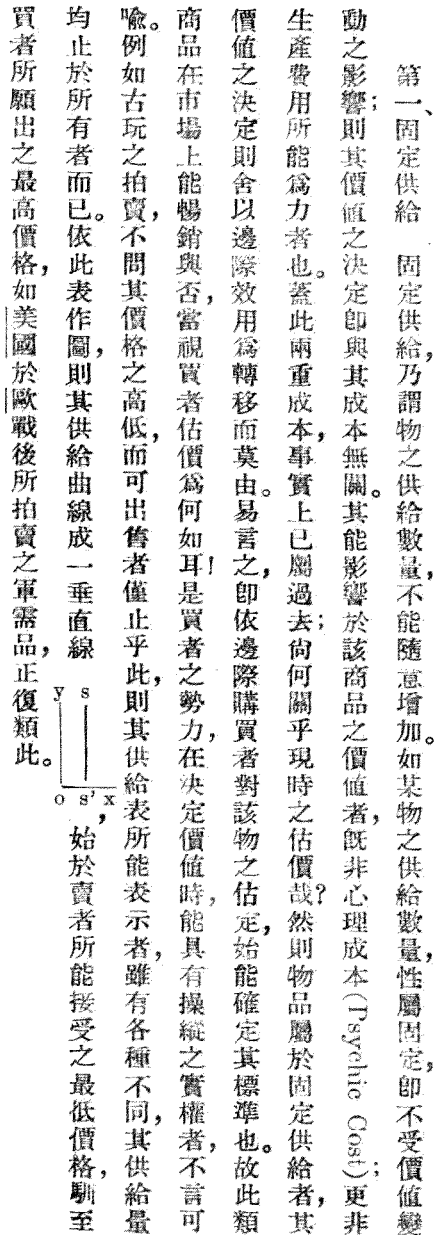 第一、固定供給　固定供給，乃謂物之供給數量，不能隨意增加。如某物之供給數量，性屬固定，卽不受價値變
動之影響；則其價值之決定卽與其成本無關。其能影響於該商品之價值者，旣非心理成本(Psychic Cost)；更非
生產費用所能爲力者也。蓋此兩重成本，事實上已屬過去；尙何關乎現時之估價哉？然則物品屬於固定供給者，其
價值之決定則舍以邊際效用爲轉移而莫由。易言之，卽依邊際購買者對該物之估定，始能確定其標準也。故此類
商品在市場上能暢銷與否，當視買者估價爲何如耳！是買者之勢力，在決定價值時，能具有操縱之實權者，不言可
喩。例如古玩之拍賣，不問其價格之高低，而可出售者僅止乎此，則其供給表所能表示者，雖有各種不同，其供給量
均止於所有者而已。依此表作圖，則其供給曲線成一垂直線 y s o s' x ，始於賣者所能接受之最低價格，馴至
買者所願出之最高價格，如美國於歐戰後所拍賣之軍需品，正復類此。